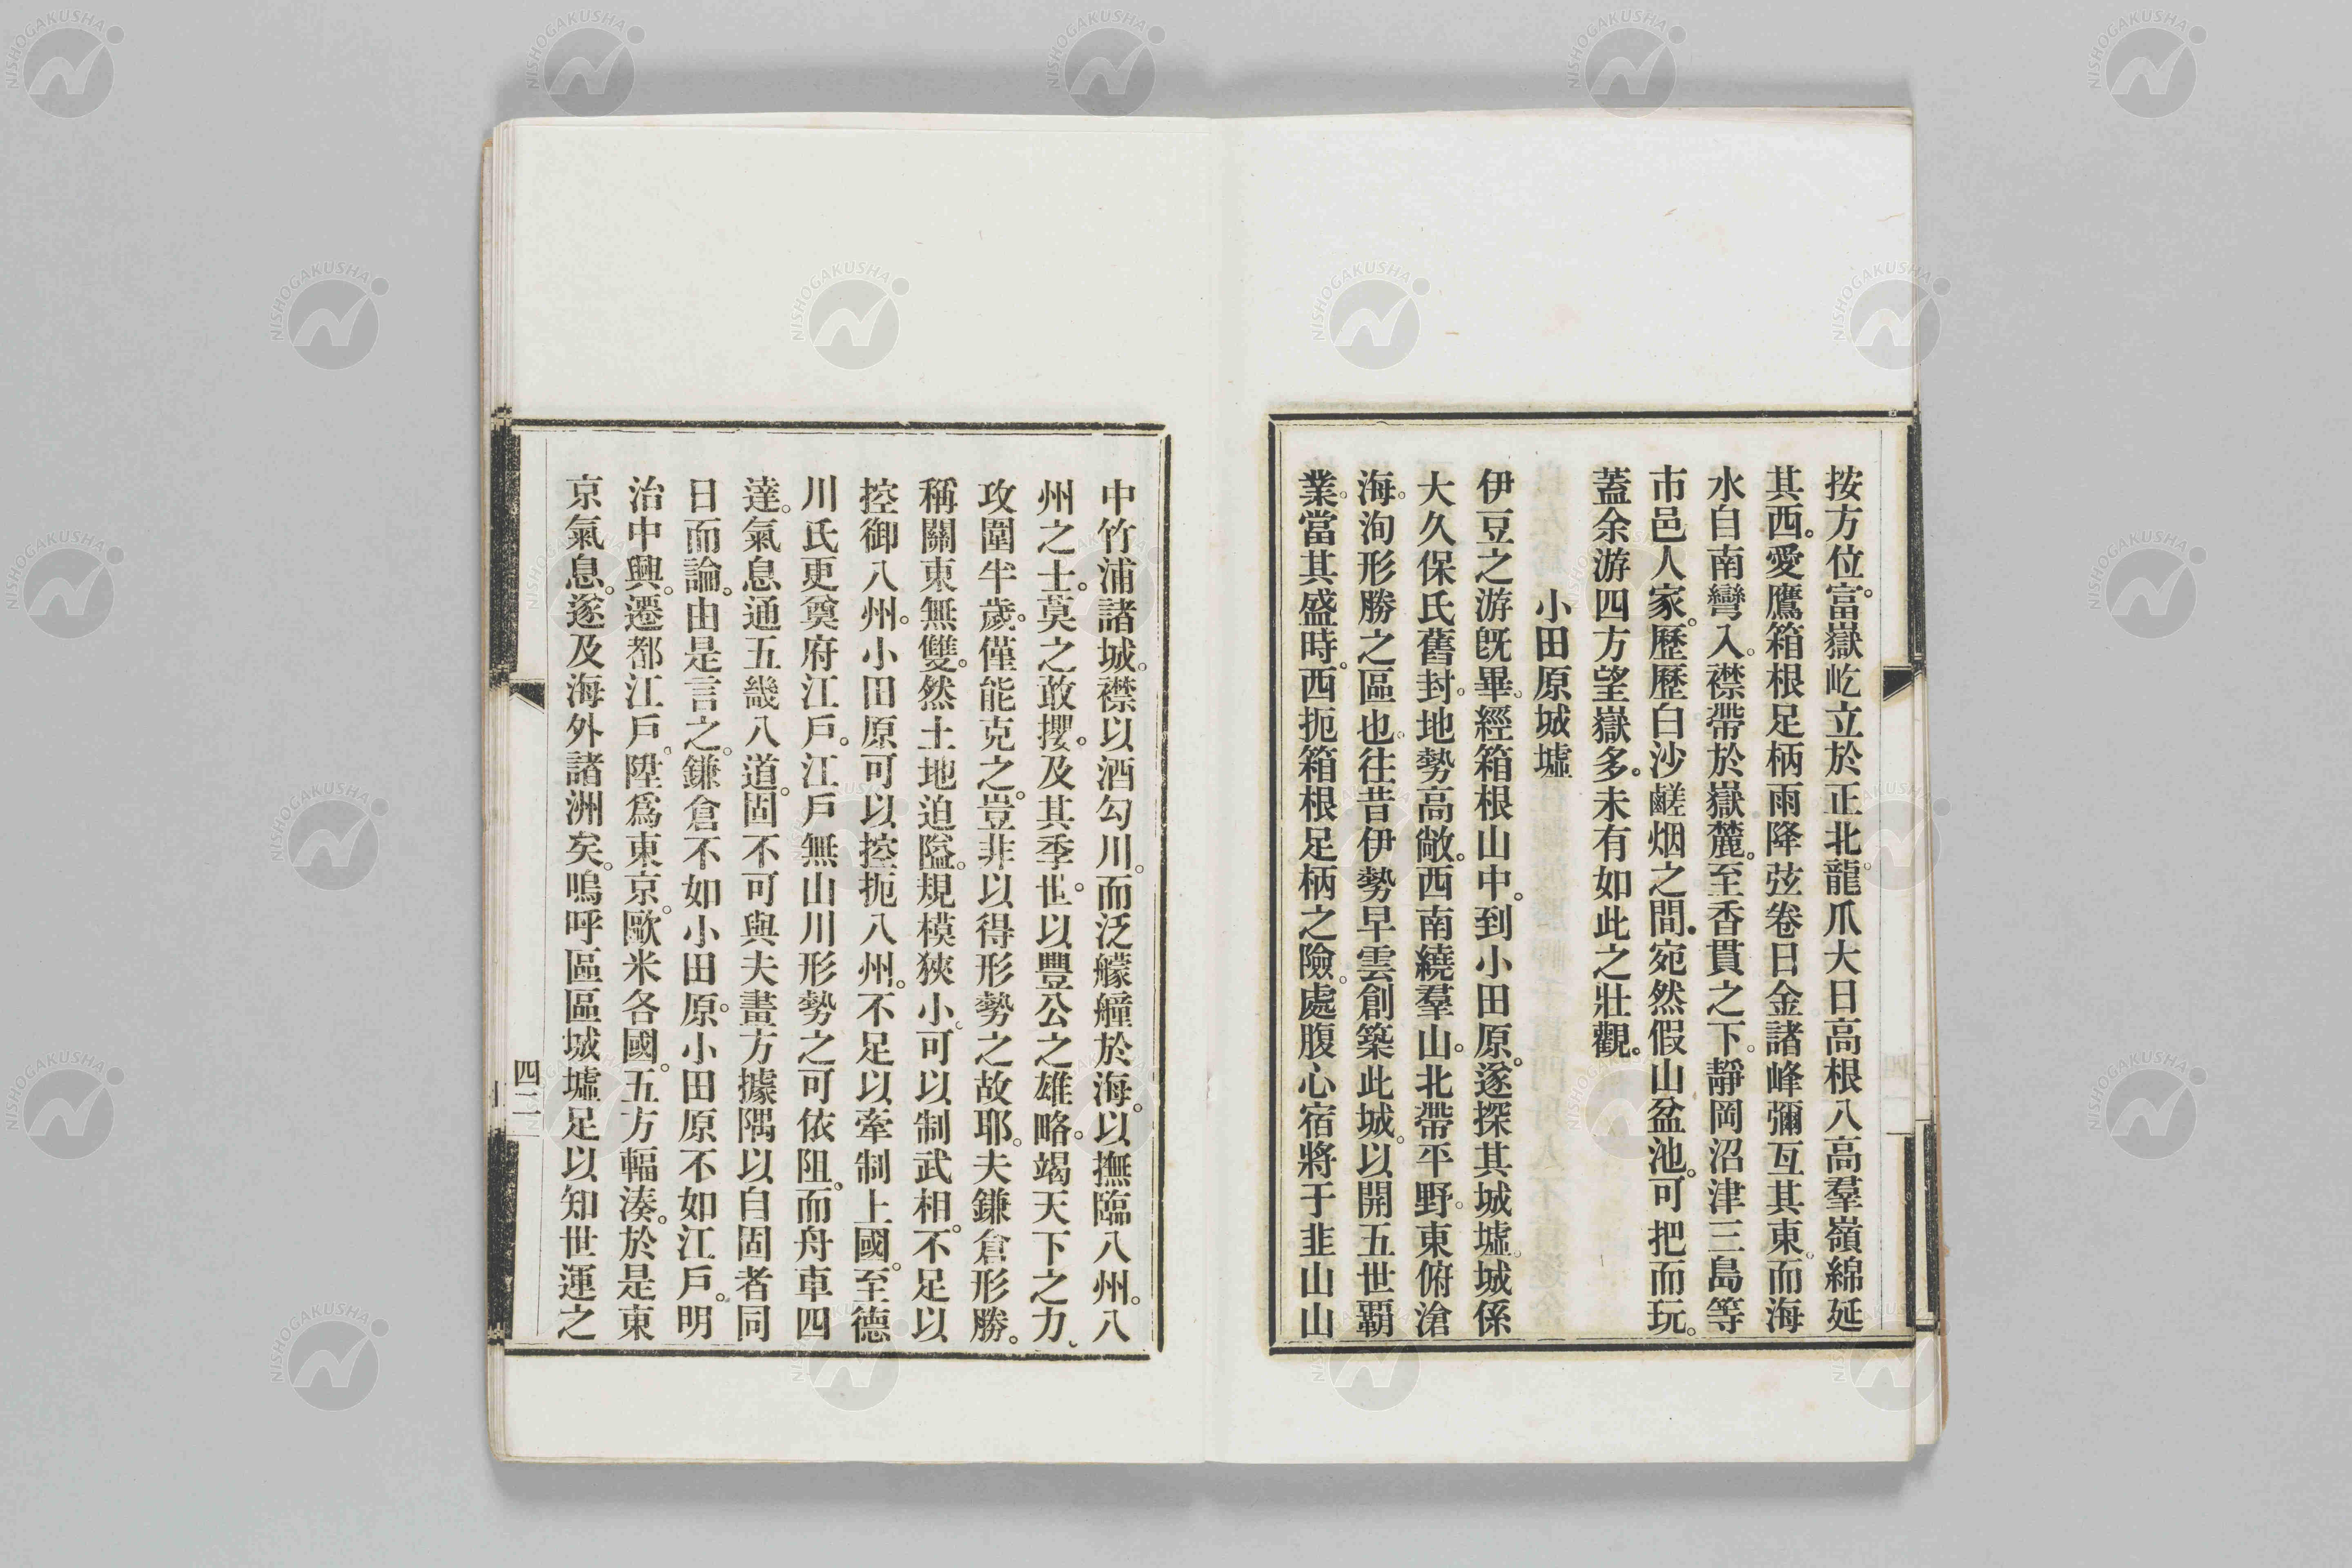 按方位。富嶽屹立於正北。龍爪大日高根八高羣嶺綿延
其西。愛鷹箱根足柄雨降弦卷日金諸峰彌亙其東。而海
水自南彎入。襟帶於嶽麓。至香貫之下。靜岡沼津三島等
市邑人家。歷歷白沙鹺烟之間。宛然假山盆池。可把而玩。
蓋余游四方望嶽多。未有如此之壯觀。
小田原城墟
伊豆之游既畢。經箱根山中。到小田原。遂探其城墟。城係
大久保氏舊封。地勢高敞。西南繞羣山。北帶平野。東俯滄
海。洵形勝之區也。往昔伊勢早雲創築此城。以開五世霸
業。當其盛時。西扼箱根足柄之險。處腹心宿將于韭山山
中竹浦諸城。襟以酒勾川。而泛艨艟於海。以撫臨八州。八
州之士。莫之敢攖。及其季世。以豐公之雄略。竭天下之力、
攻圍半歲。僅能克之。豈非以得形勢之故耶。夫鎌倉形勝。
稱關東無雙。然土地迫隘。規模狹小。可以制武相。不足以
控御八州。小田原可以控扼八州。不足以牽制上國。至德
川氏更奠府江戶。江戶無山川形勢之可依阻。而舟車四
達。氣息通五畿八道。固不可與夫畫方據隅以自固者同
日而論。由是言之。鎌倉不如小田原。小田原不如江戶。明
治中興。遷都江戶。陞爲東京。歐米各國。五方輻湊。於是東
京氣息。遂及海外諸洲矣。嗚呼區區城墟足以知世運之
四二
NISHOGAKUSHA